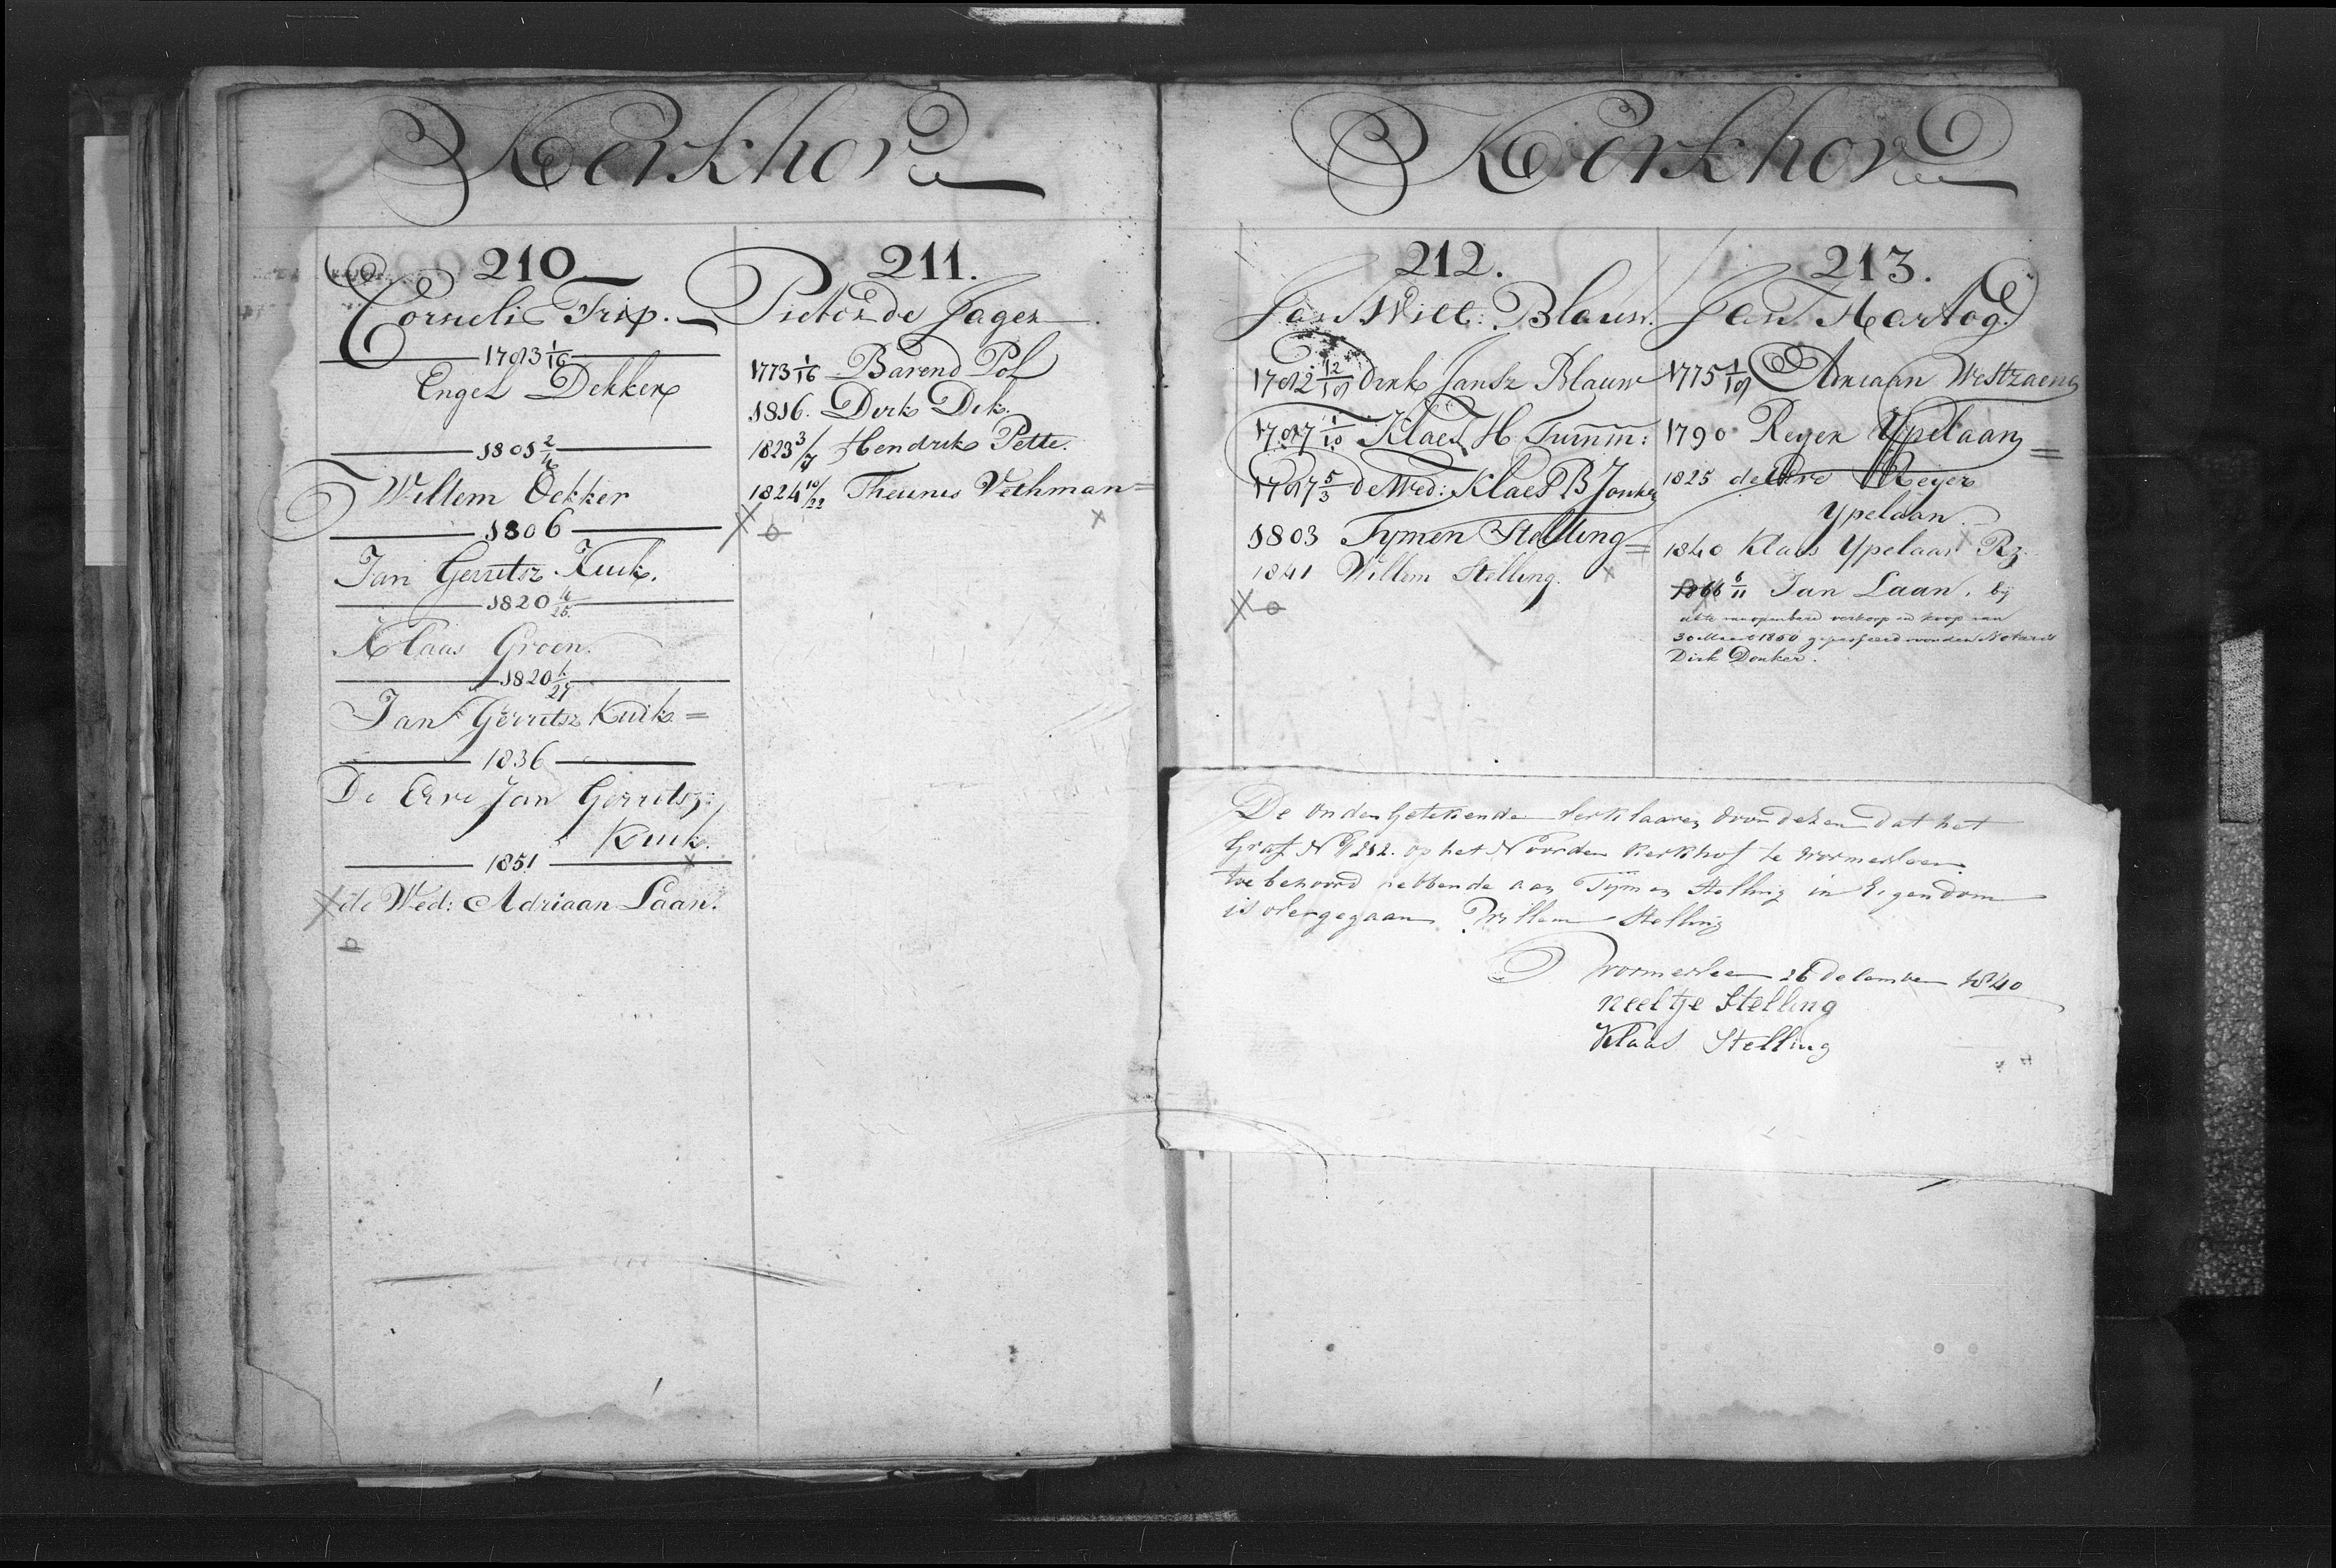 Kerkhof
210
Cornelis Trip.
1793 1/16
Engel Dekker
1805 2/4
Willem Dekker
1806
Jan Gerritsz Kuik.
1820 4/25
Klaas Groen.
1820 4/29
Jan Gerritsz Kuik =
1836
De Erve Jan Gerritsz:
Kuik.
1851
x de Wed: Adriaan Laan.
211.
Pieter de Jager
1773 1/16 Barend Pol
1816. Dirk Dek.
1823 3/7 Hendrik Pette.
1824 10/22 Theunis Vethman =
Kerkhof
212.
Jan Will: Blauw.
12/19 Dirk Jansz Blauw
1/10 Klaes H. Tumm:
5/3 de Wed: Klaes B Jonker
1803 Tymen Stelling =
1841 Willem Stelling.
213.
Jan Hartog.
1775 1/19 Adriaan Westzaen
1790 Reyer Ypelaan =
1825 de Erve Reyer
Ypelaan.
1840 Klaas Ypelaan Rz.
1866 6/11 Jan Laan, bij
akte van openbare verkoop en koop van
30 Maart 1860 gepasseerd voor den Notaris
Dirk Donker.
De ondergetekende verklaaren door dezen dat het
Graf No 212. op het Noorder Kerkhof te Wormerveer
toebehoord hebbende aan Tymen Stelling in Eigendom
is overgegaan Willem Stelling
Wormerveer 26 December 1840
Neeltje Stelling
Klaas Stelling